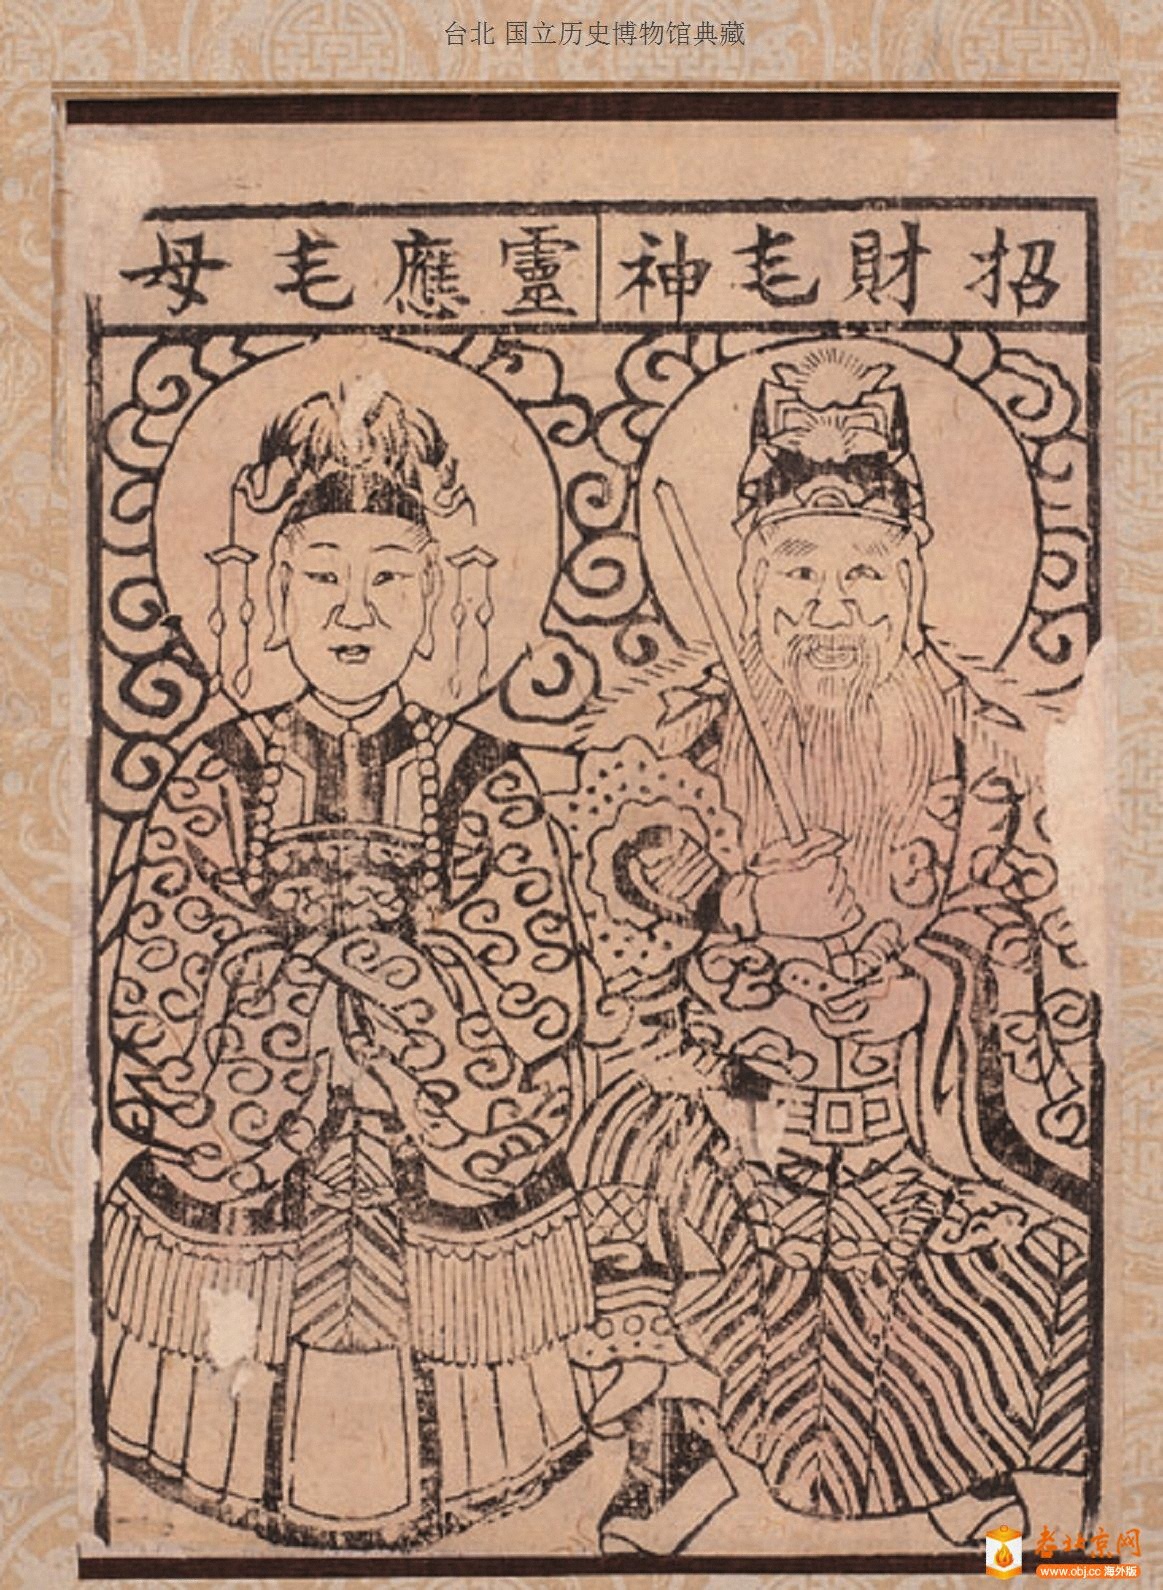 台北 国立历史博物馆典藏
招財毛神
靈應毛母
老北京网
www.obj.cc 海外版